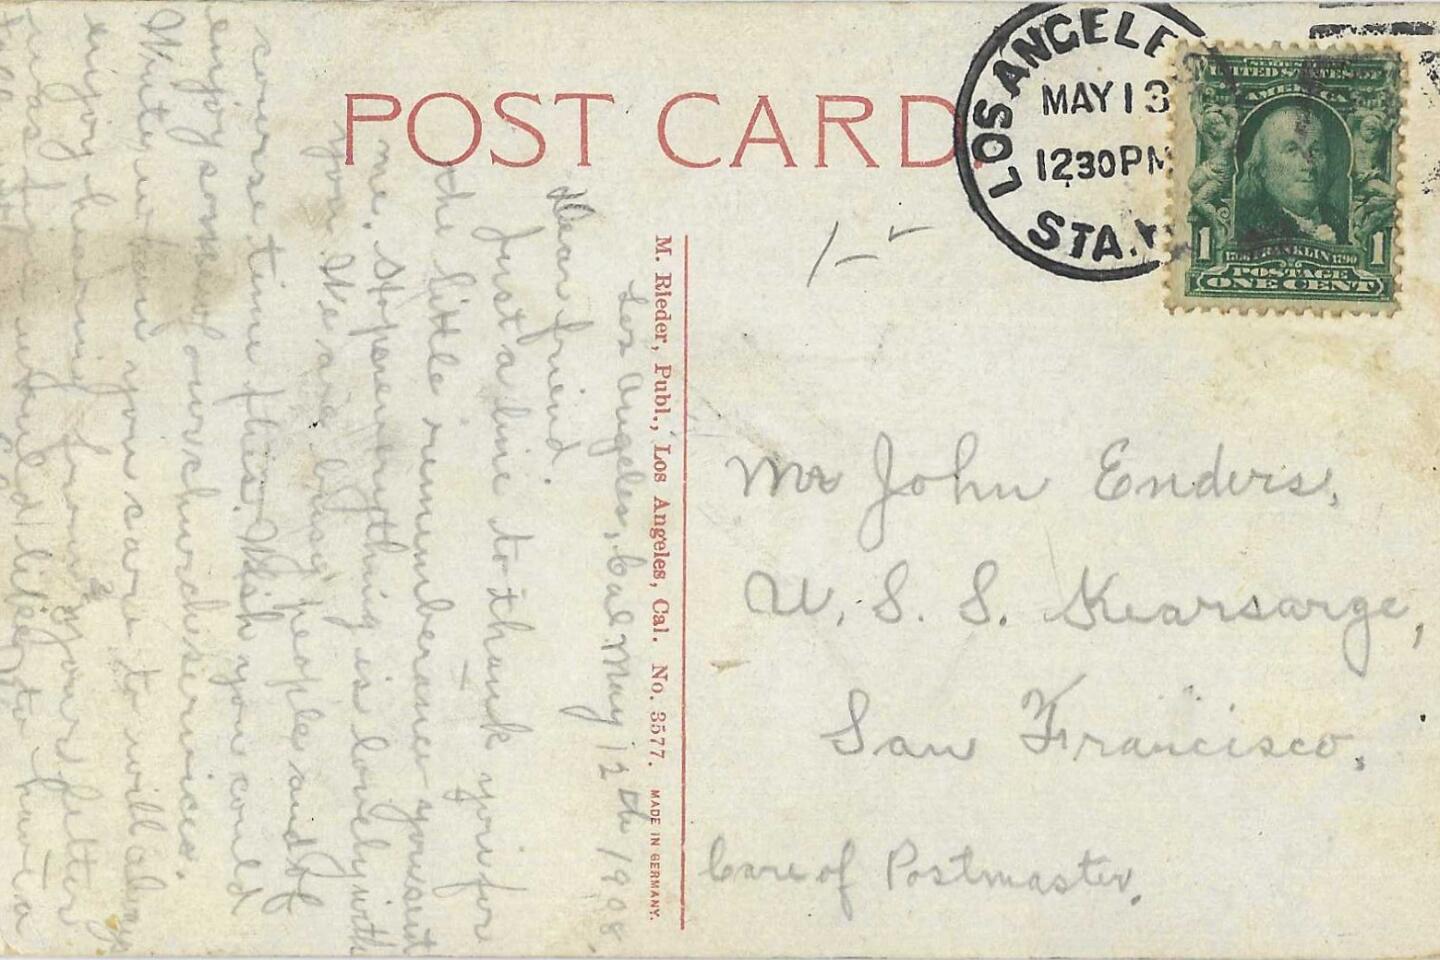 POST CARD.
LOS ANGELES
MAY 13
12 30 PM
STA.
SERIES 1902
UNITED STATES OF
AMERICA
1706 FRANKLIN 1790
POSTAGE
1 ONE CENT 1
M. Rieder, Publ., Los Angeles, Cal. No. 3577. MADE IN GERMANY.
Los Angeles, Cal May 12th 1908.
Dear friend.
Just a line to thank you for
the little rememberance you sent
me. Hope everything is lovely with
you. We are busy people and of
course time flies. Wish you could
enjoy some of our church services.
Write when you care to will always
enjoy hearing from you
would like to have a
Mr John Enders,
U. S. S. Kearsarge,
San Francisco.
Care of Postmaster.